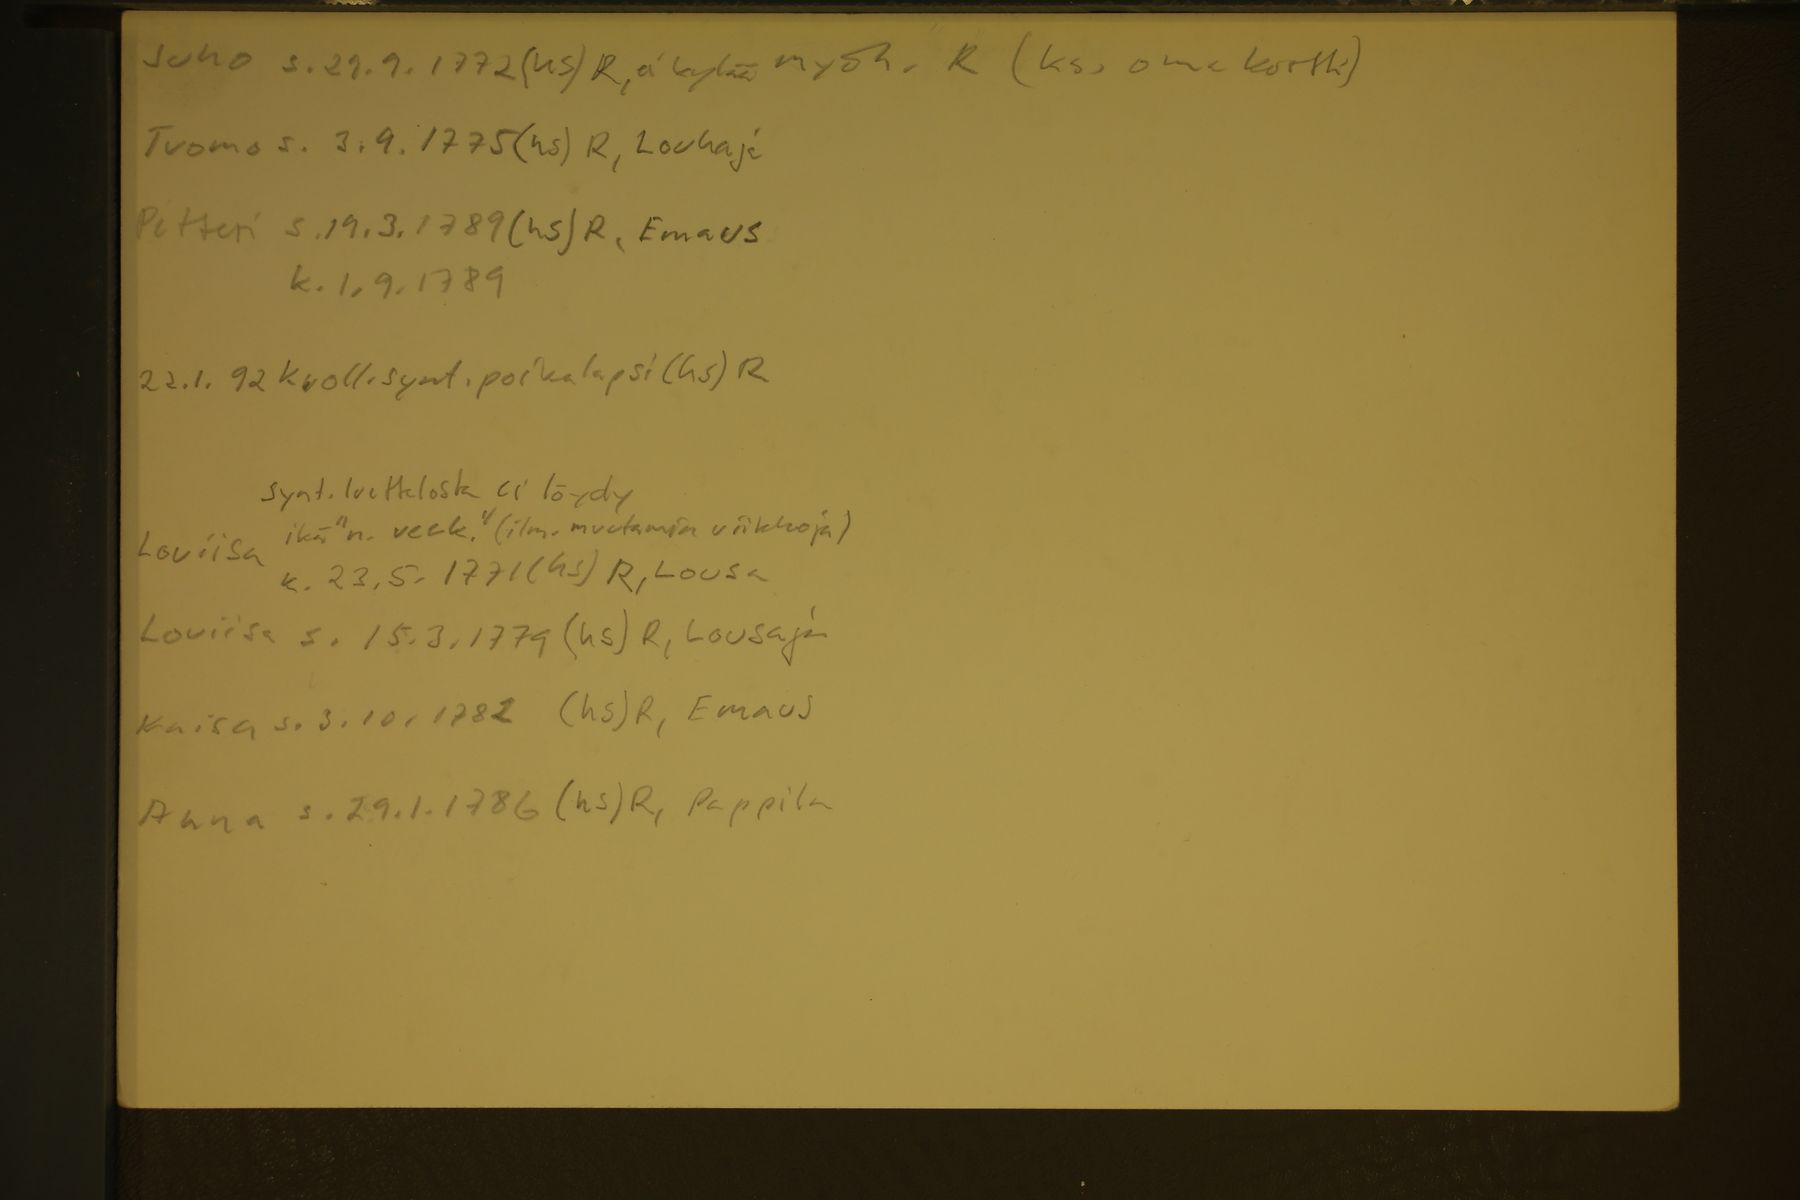 Juho s. 29.9.1772 (hs) R, ei kylää myöh. R (ks. oma kortti)
Tuomo s. 3.9.1775 (hs) R, Louhaja
Petteri s. 19.3.1789 (hs) R, Emaus
k. 1.9.1789
22.1.92 kuoll. synt. poikalapsi (hs) R
synt. luettelosta ei löydy
ikä "n. veck." (ilm. muutamia viikkoja)
Loviisa
k. 23.5.1771 (hs) R, Lousa
Loviisa s. 15.3.1779 (hs) R, Lousaja
Kaisa s. 3.10.1782 (hs) R, Emaus
Anna s. 29.1.1786 (hs) R, Pappila